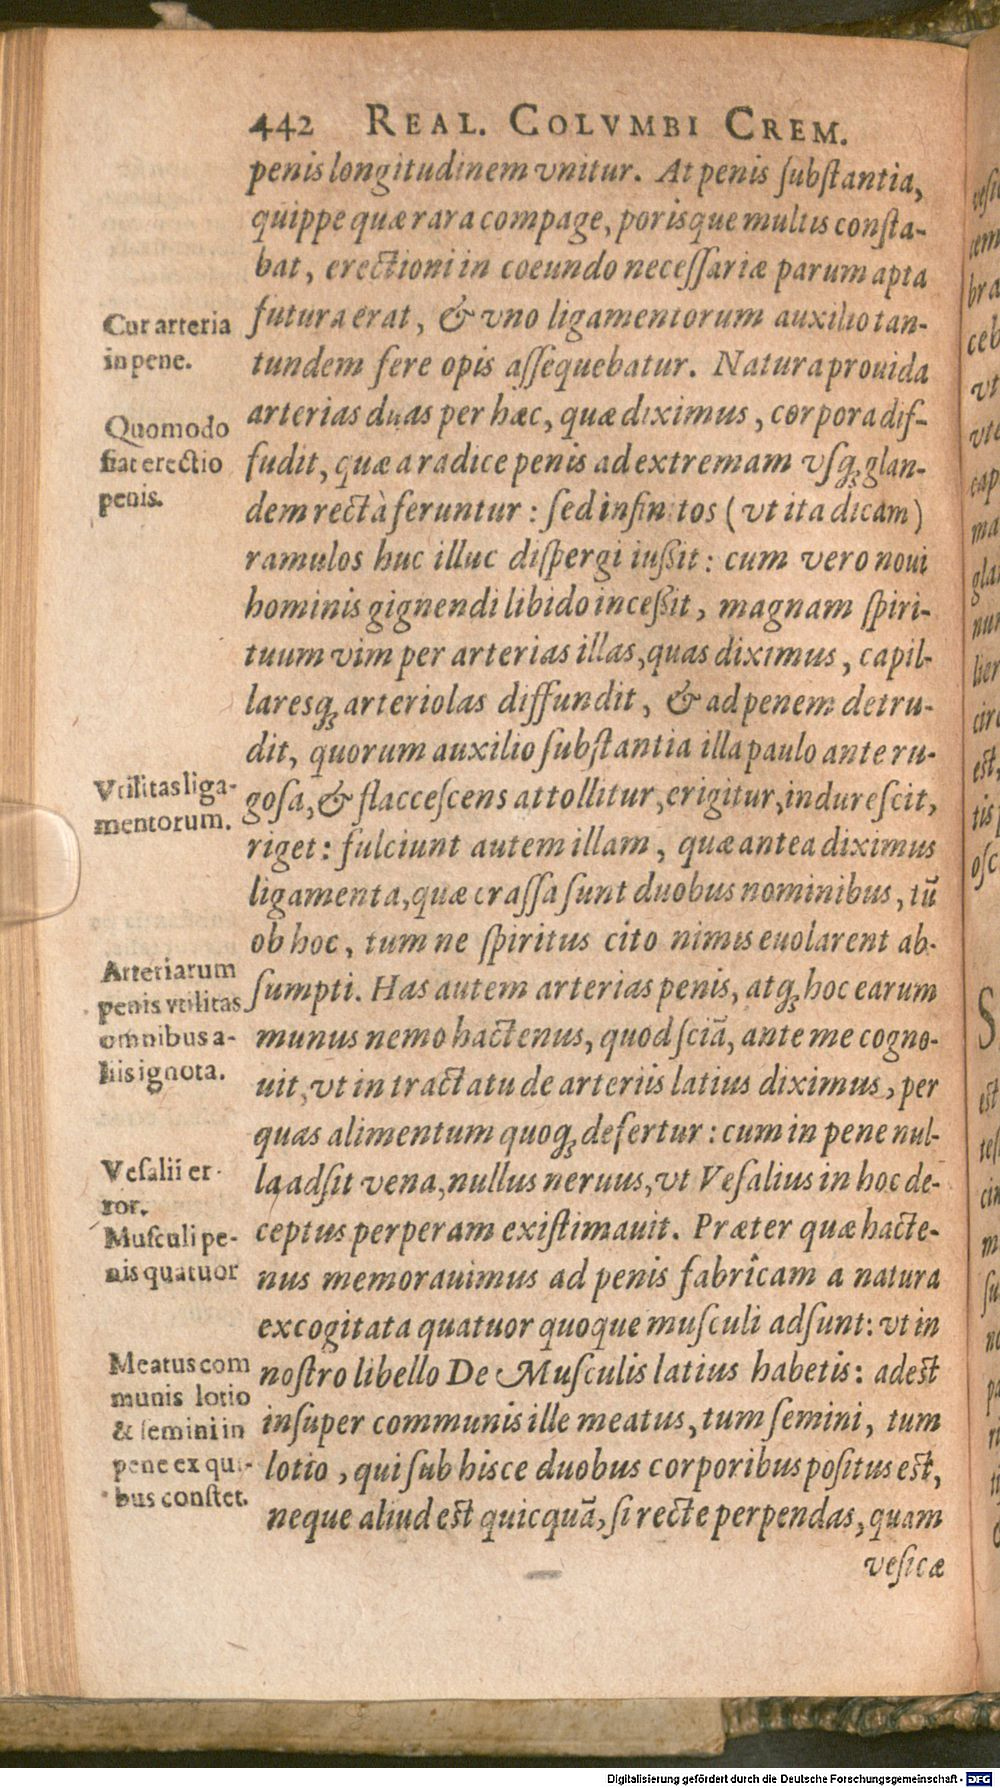 442 REAL. COLVMBI CREM.
penis longitudinem vnitur. At penis ſubſtantia,
quippe quæ rara compage, porisque multis conſta-
bat, erectioni in coeundo neceſſariæ parum apta
futura erat, & vno ligamentorum auxilio tan-
tundem fere opis aſſequebatur. Natura prouida
arterias duas per hæc, quæ diximus, corpora dif-
fudit, quæ a radice penis ad extremam vſqꝫ glan-
dem rectà feruntur: ſed infinitos (vt ita dicam)
ramulos huc illuc diſpergi iuſsit: cum vero noui
hominis gignendi libido inceſsit, magnam ſpiri-
tuum vim per arterias illas, quas diximus, capil-
laresqꝫ arteriolas diffundit, & ad penem detru-
dit, quorum auxilio ſubſtantia illa paulo ante ru-
goſa, & flacceſcens attollitur, erigitur, indureſcit,
riget: fulciunt autem illam, quæ antea diximus
ligamenta, quæ craſſa ſunt duobus nominibus, tū
ob hoc, tum ne ſpiritus cito nimis euolarent ab-
ſumpti. Has autem arterias penis, atqꝫ hoc earum
munus nemo hactenus, quod ſciā, ante me cogno-
uit, vt in tractatu de arteriis latius diximus, per
quas alimentum quoqꝫ defertur: cum in pene nul-
la adſit vena, nullus neruus, vt Veſalius in hoc de-
ceptus perperam exiſtimauit. Præter quæ hacte-
nus memorauimus ad penis fabricam a natura
excogitata quatuor quoque muſculi adſunt: vt in
noſtro libello De Muſculis latius habetis: adest
inſuper communis ille meatus, tum ſemini, tum
lotio, qui ſub hisce duobus corporibus poſitus est,
neque aliud est quicquā, ſi recte perpendas, quam
veſicæ
Cur arteria
in pene.
Quomodo
fiat erectio
penis.
Vtilitas liga-
mentorum.
Arteriarum
penis vtilitas
omnibus a-
liis ignota.
Veſalii er-
ror.
Muſculi pe-
nis quatuor
Meatus com
munis lotio
& ſemini in
pene ex qui-
bus conſtet.
Digitalisierung gefördert durch die Deutsche Forschungsgemeinschaft - DFG